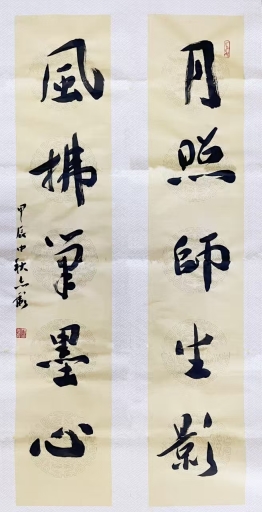 月照師生影
風拂筆墨心
甲辰中秋